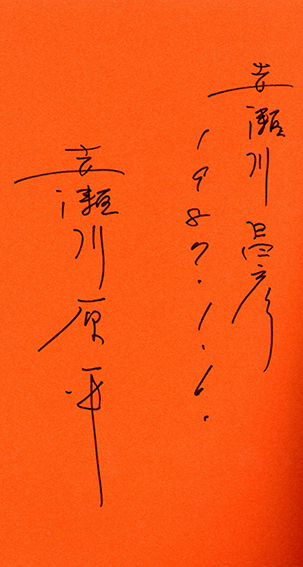 赤瀬川昌彦
1987.1.6.
赤瀬川原平